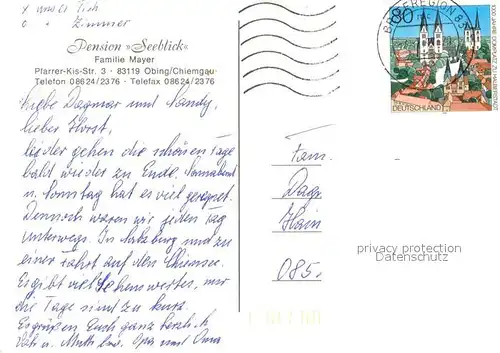 x unser Tisch
o " Zimmer
Pension »Seeblick«
Familie Mayer
Pfarrer-Kis-Str. 3 · 83119 Obing/Chiemgau
Telefon 08624/2376 · Telefax 08624/2376
Liebe Dagmar und Mandy,
lieber Horst,
leider gehen die schönen Tage
bald wieder zu Ende. Sonnabend
u. Sonntag hat es viel geregnet.
Dennoch waren wir jeden Tag
unterwegs. In Salzburg und zu
einer Fahrt auf den Chiemsee.
Es gibt viel Sehenswertes, nur
die Tage sind zu kurz.
Es grüßen Euch ganz herzlich
u. Mutti bzw. Opa und Oma
80
1000 JAHRE DOMPLATZ ZU HALBERSTADT
DEUTSCHLAND
BRIEFREGION 83
Fam.
Dagr
Hain
085
privacy protection
Datenschutz